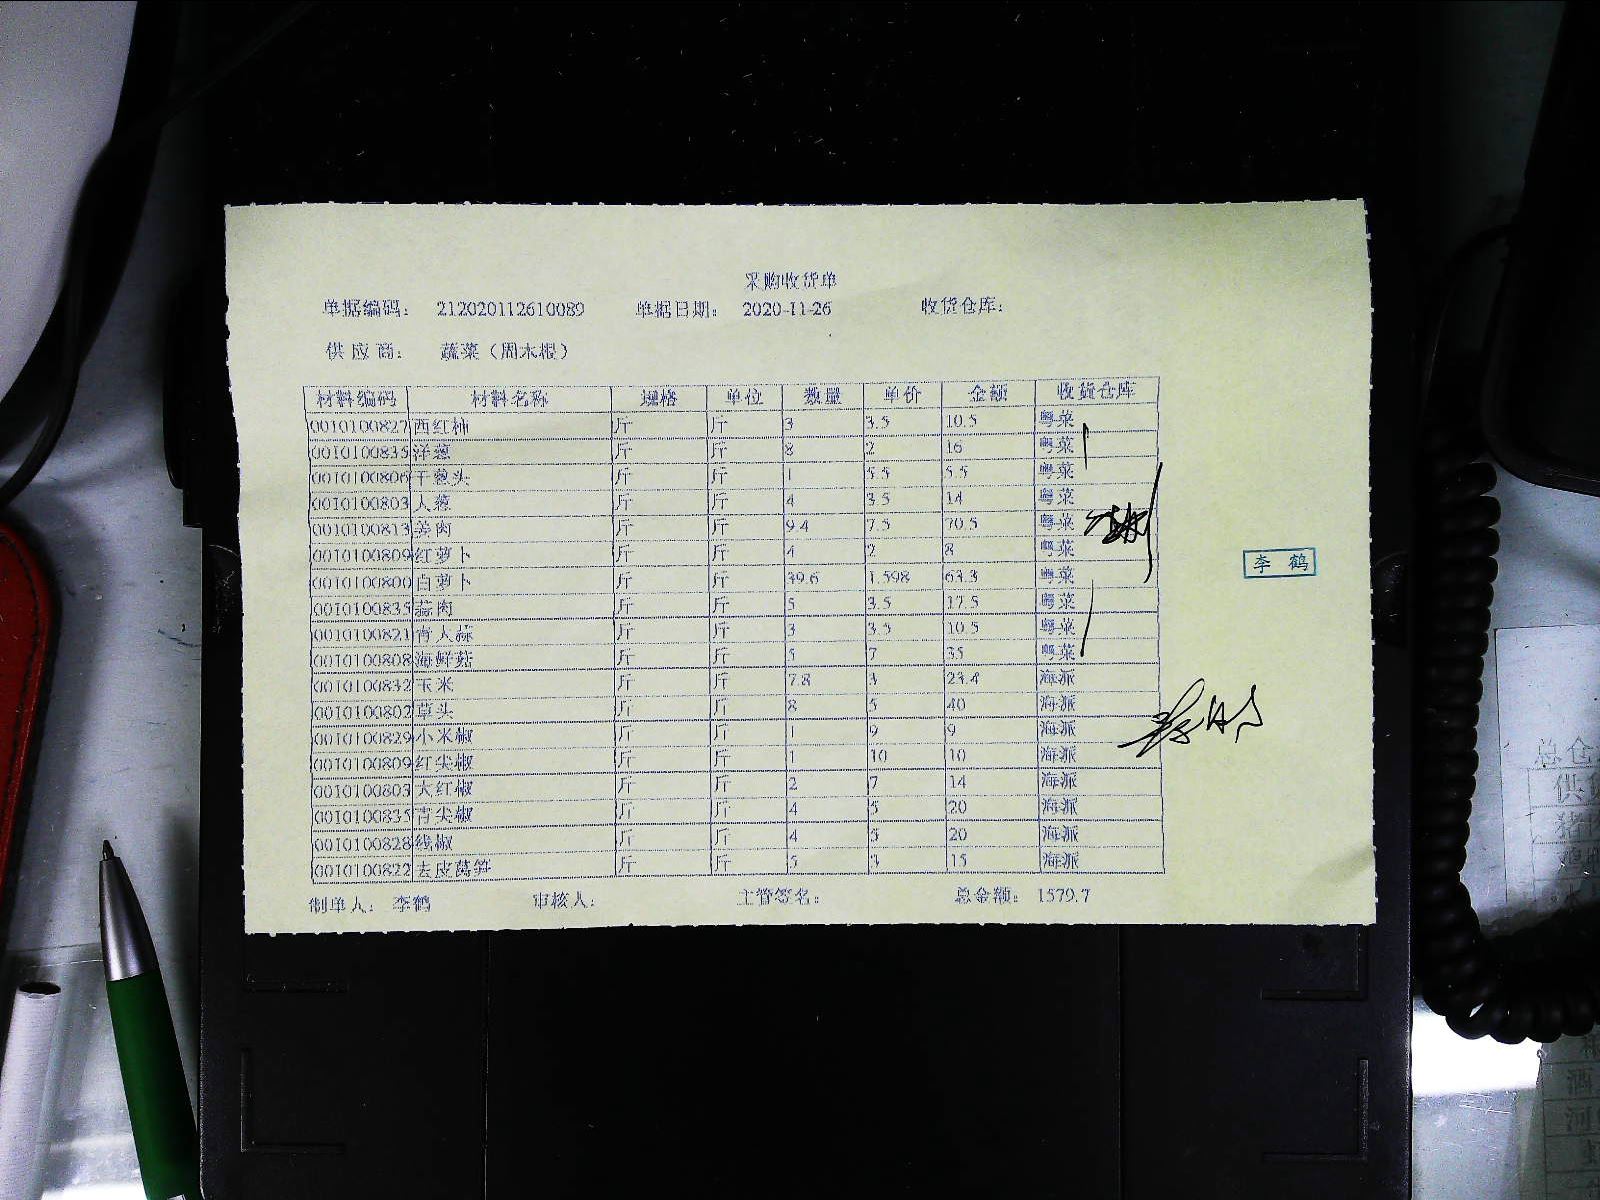 采购收货单
单据编码： 212020112610089 单据日期： 2020-11-26 收货仓库：
供 应 商： 蔬菜（周木根）
材料编码 材料名称 规格 单位 数量 单价 金额 收货仓库
0010100827 西红柿 斤 斤 3 3.5 10.5 粤菜
0010100835 洋葱 斤 斤 8 2 16 粤菜
0010100806 干葱头 斤 斤 1 5.5 5.5 粤菜
0010100803 大葱 斤 斤 4 3.5 14 粤菜
0010100813 姜肉 斤 斤 9.4 7.5 70.5 粤菜
0010100809 红萝卜 斤 斤 4 2 8 粤菜
0010100800 白萝卜 斤 斤 39.6 1.598 63.3 粤菜
0010100835 蒜肉 斤 斤 5 3.5 17.5 粤菜
0010100821 青大蒜 斤 斤 3 3.5 10.5 粤菜
0010100808 海鲜菇 斤 斤 5 7 35 粤菜
0010100832 玉米 斤 斤 7.8 3 23.4 海派
0010100802 草头 斤 斤 8 5 40 海派
0010100829 小米椒 斤 斤 1 9 9 海派
0010100809 红尖椒 斤 斤 1 10 10 海派
0010100803 大红椒 斤 斤 2 7 14 海派
0010100835 青尖椒 斤 斤 4 5 20 海派
0010100828 线椒 斤 斤 4 5 20 海派
0010100822 去皮莴笋 斤 斤 5 3 15 海派
制单人： 李鹤 审核人： 主管签名： 总金额： 1579.7
李 鹤
总仓